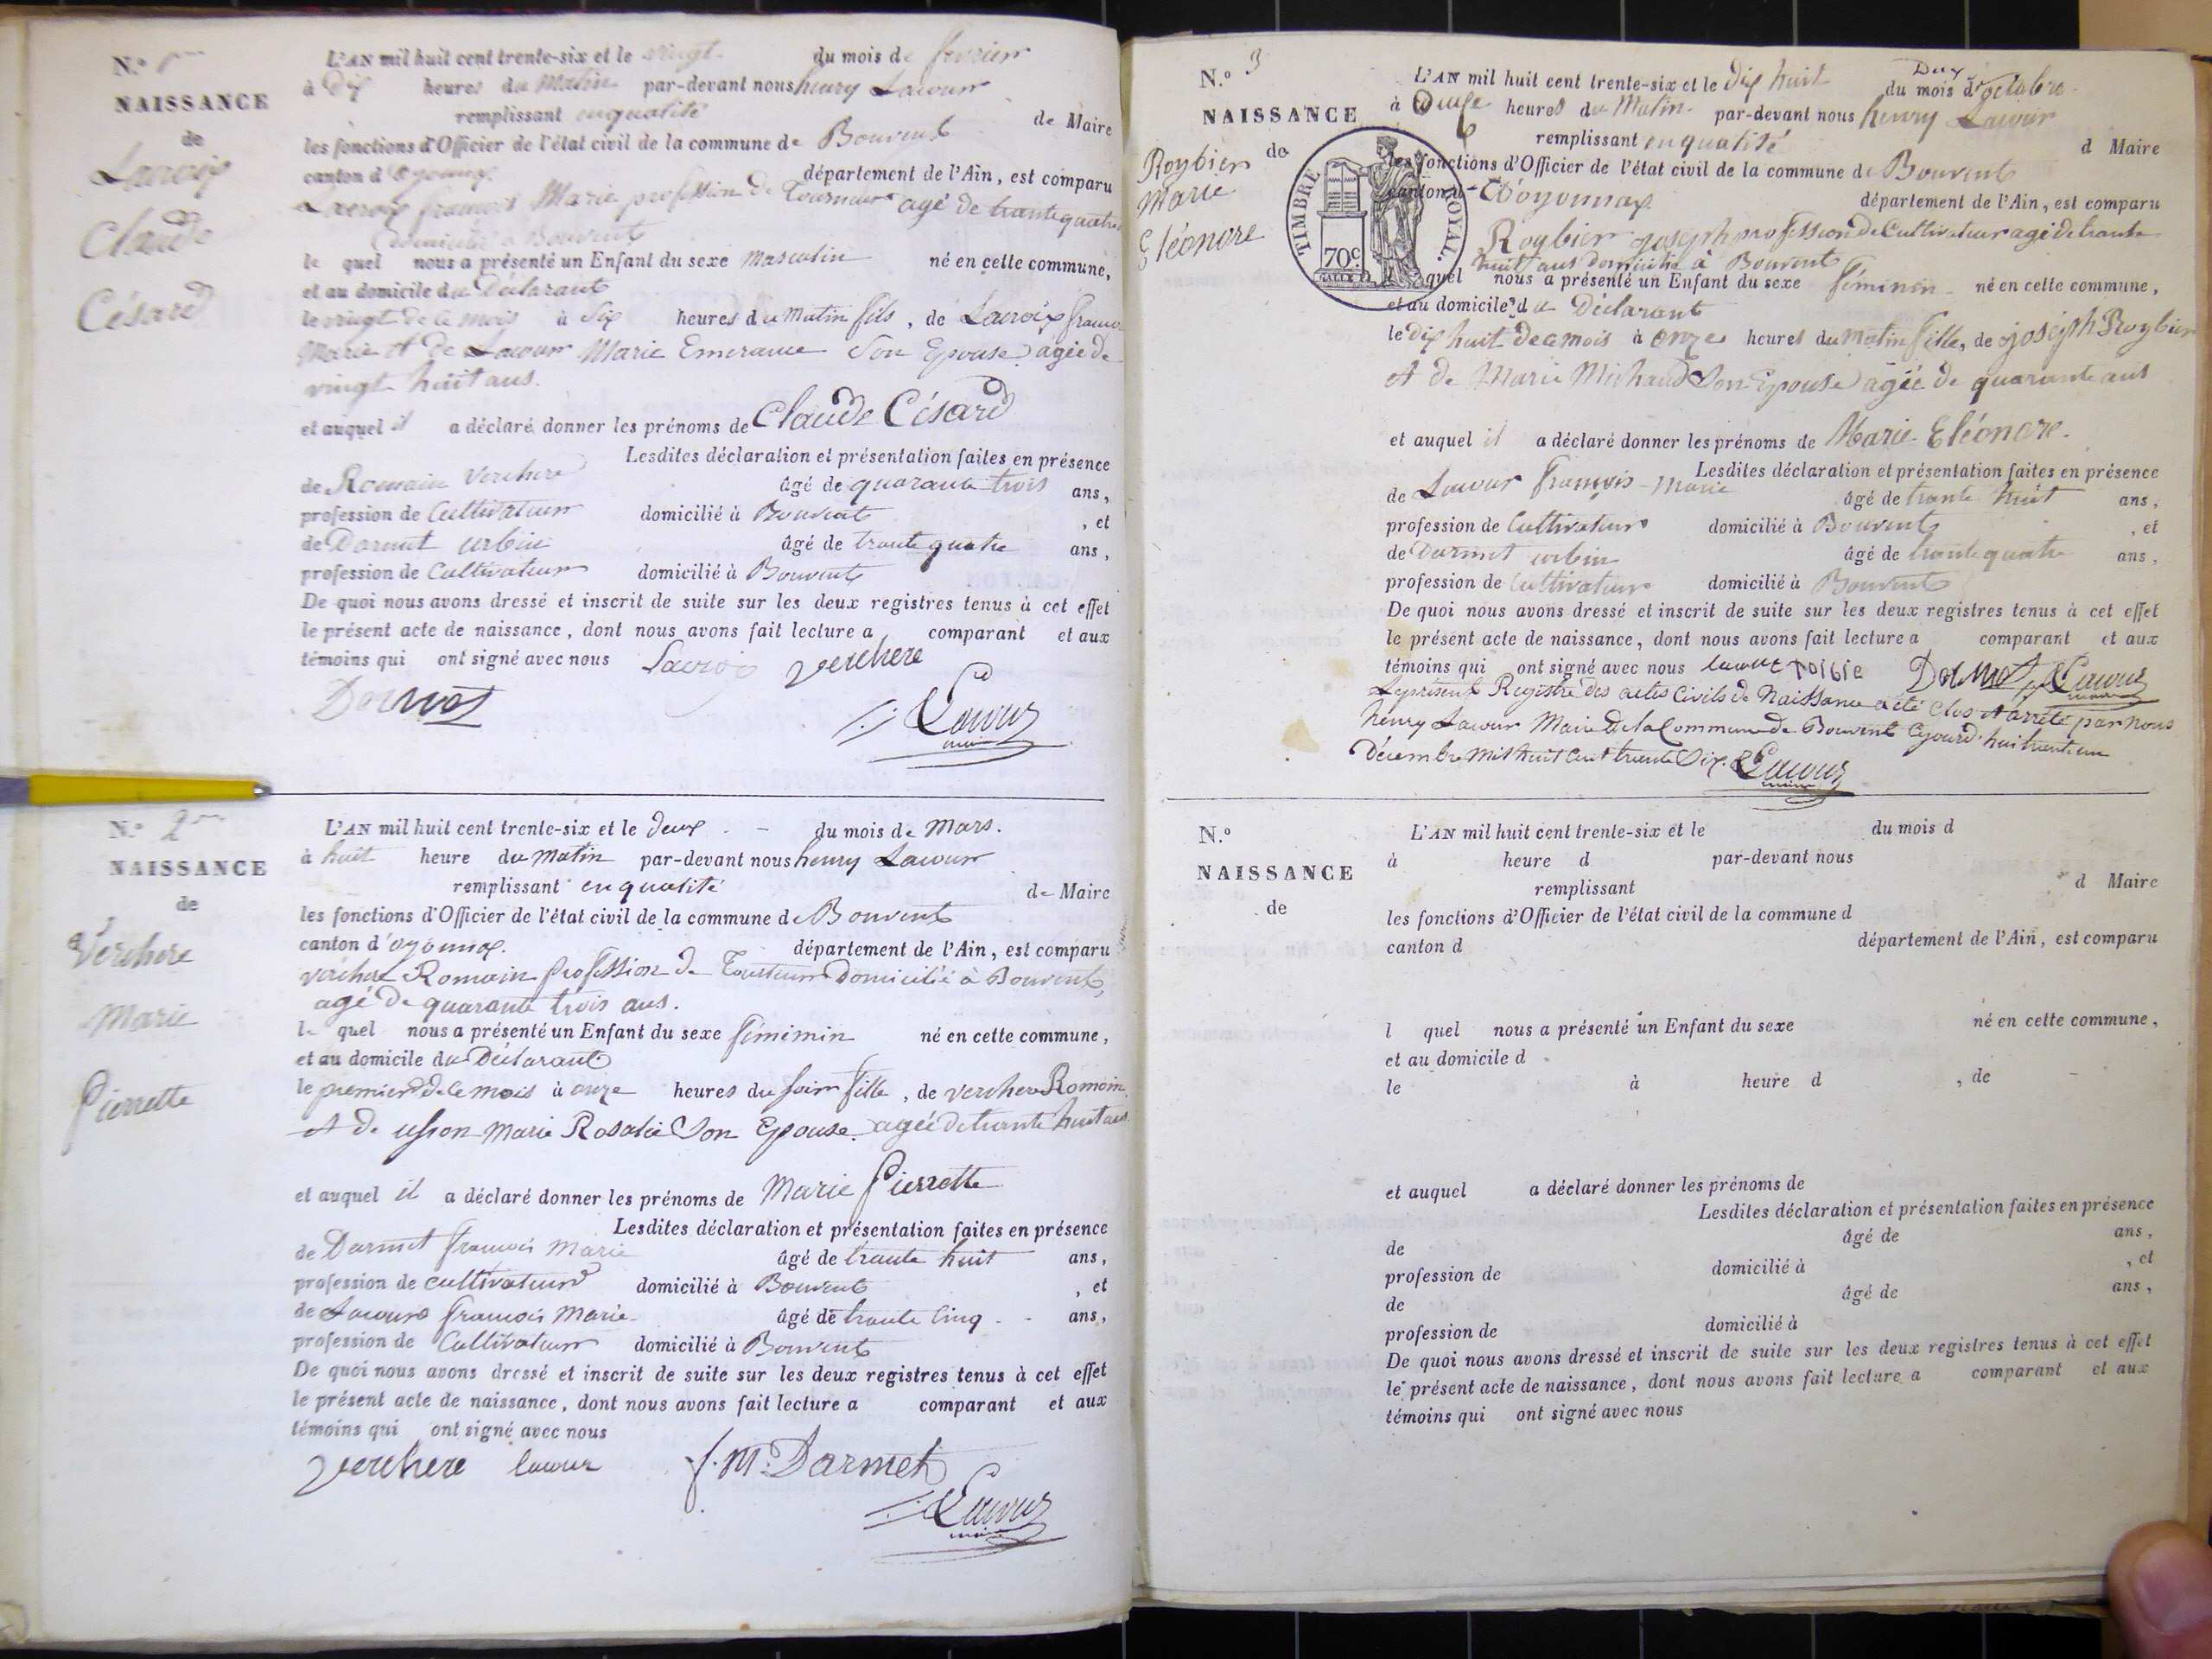 N.o 1
NAISSANCE
de
Lacroix
Claude
Césard
L'AN mil huit cent trente-six et le vingt du mois de fevrier
à Dix heures du Matin par-devant nous henry Lacour
remplissant en qualité de Maire
les fonctions d'Officier de l'état civil de la commune de Bouvent
canton d'oyonnax département de l'Ain, est comparu
Lacroix francois Marie profession de Tourneur agé de trante quatre
domicilié a Bouvent
le quel nous a présenté un Enfant du sexe Masculin né en cette commune,
et au domicile du Déclarant
le vingt de ce mois à Six heures du Matin fils, de Lacroix francois
Marie et de Lacour Marie Emerance Son Epouse agée de
vingt huit ans.
et auquel il a déclaré donner les prénoms de Claude Césard
Lesdites déclaration et présentation faites en présence
de Romain Verchere âgé de quarante trois ans,
profession de Cultivateur domicilié à Bouvent, et
de Darmet urbin âgé de trante quatre ans,
profession de Cultivateur domicilié à Bouvent
De quoi nous avons dressé et inscrit de suite sur les deux registres tenus à cet effet
le présent acte de naissance, dont nous avons fait lecture a comparant et aux
témoins qui ont signé avec nous Lacroix verchere
Dormet
Lacour
maire
N.o 2
NAISSANCE
de
Verchere
Marie
Pierrette
L'AN mil huit cent trente-six et le deux du mois de Mars.
à huit heure du Matin par-devant nous henry Lacour
remplissant en qualité de Maire
les fonctions d'Officier de l'état civil de la commune de Bouvent
canton d'oyonnax. département de l'Ain, est comparu
verchere Romain profession de Tourneur Domicilié à Bouvent,
agé de quarante trois ans.
le quel nous a présenté un Enfant du sexe féminin né en cette commune,
et au domicile du Déclarant
le premier de ce mois à onze heures du soir fille, de verchere Romain
et de usson Marie Rosalie Son Epouse. agée de trante huit ans
et auquel il a déclaré donner les prénoms de Marie Pierrette
Lesdites déclaration et présentation faites en présence
de Darmet francois Marie âgé de trante huit ans,
profession de cultivateur domicilié à Bouvent, et
de Lacour francois Marie âgé de trante Cinq ans,
profession de Cultivateur domicilié à Bouvent
De quoi nous avons dressé et inscrit de suite sur les deux registres tenus à cet effet
le présent acte de naissance, dont nous avons fait lecture a comparant et aux
témoins qui ont signé avec nous
verchere lacour f. M. Darmet
Lacour
maire
N.o 3
NAISSANCE
de
Roybier
Marie
Eléonore
TIMBRE ROYAL.
70c
L'AN mil huit cent trente-six et le Dix huit du mois d'octobre
à Douze heures du Matin par-devant nous henry Lacour
remplissant en qualité d Maire
les fonctions d'Officier de l'état civil de la commune de Bouvent
canton d'oyonnax département de l'Ain, est comparu
Roybier joseph profession de Cultivateur agé de trante
huit ans Domicilié à Bouvent
quel nous a présenté un Enfant du sexe féminin né en cette commune,
et au domicile du Déclarant
le dix huit de ce mois à onze heures du matin fille, de joseph Roybier
et de Marie Michaud Son Epouse agée de quarante ans
et auquel il a déclaré donner les prénoms de Marie Eléonore.
Lesdites déclaration et présentation faites en présence
de Lacour françois-Marie âgé de trante huit ans,
profession de Cultivateur domicilié à Bouvent, et
de Darmet urbin âgé de trante quatre ans,
profession de Cultivateur domicilié à Bouvent
De quoi nous avons dressé et inscrit de suite sur les deux registres tenus à cet effet
le présent acte de naissance, dont nous avons fait lecture a comparant et aux
témoins qui ont signé avec nous lacour Dormet Lacour
Le présent Registre des actes Civils de Naissance a été Clos et arrêté par nous
henry Lacour Maire de la Commune de Bouvent Cejourd'hui trente un
Décembre Mil huit Cent trente Six. Lacour
maire
N.o
NAISSANCE
de
L'AN mil huit cent trente-six et le du mois d
à heure d par-devant nous
remplissant d Maire
les fonctions d'Officier de l'état civil de la commune d
canton d département de l'Ain, est comparu
l quel nous a présenté un Enfant du sexe né en cette commune,
et au domicile d
le à heure d , de
et auquel a déclaré donner les prénoms de
Lesdites déclaration et présentation faites en présence
de âgé de ans,
profession de domicilié à , et
de âgé de ans,
profession de domicilié à
De quoi nous avons dressé et inscrit de suite sur les deux registres tenus à cet effet
le présent acte de naissance, dont nous avons fait lecture a comparant et aux
témoins qui ont signé avec nous